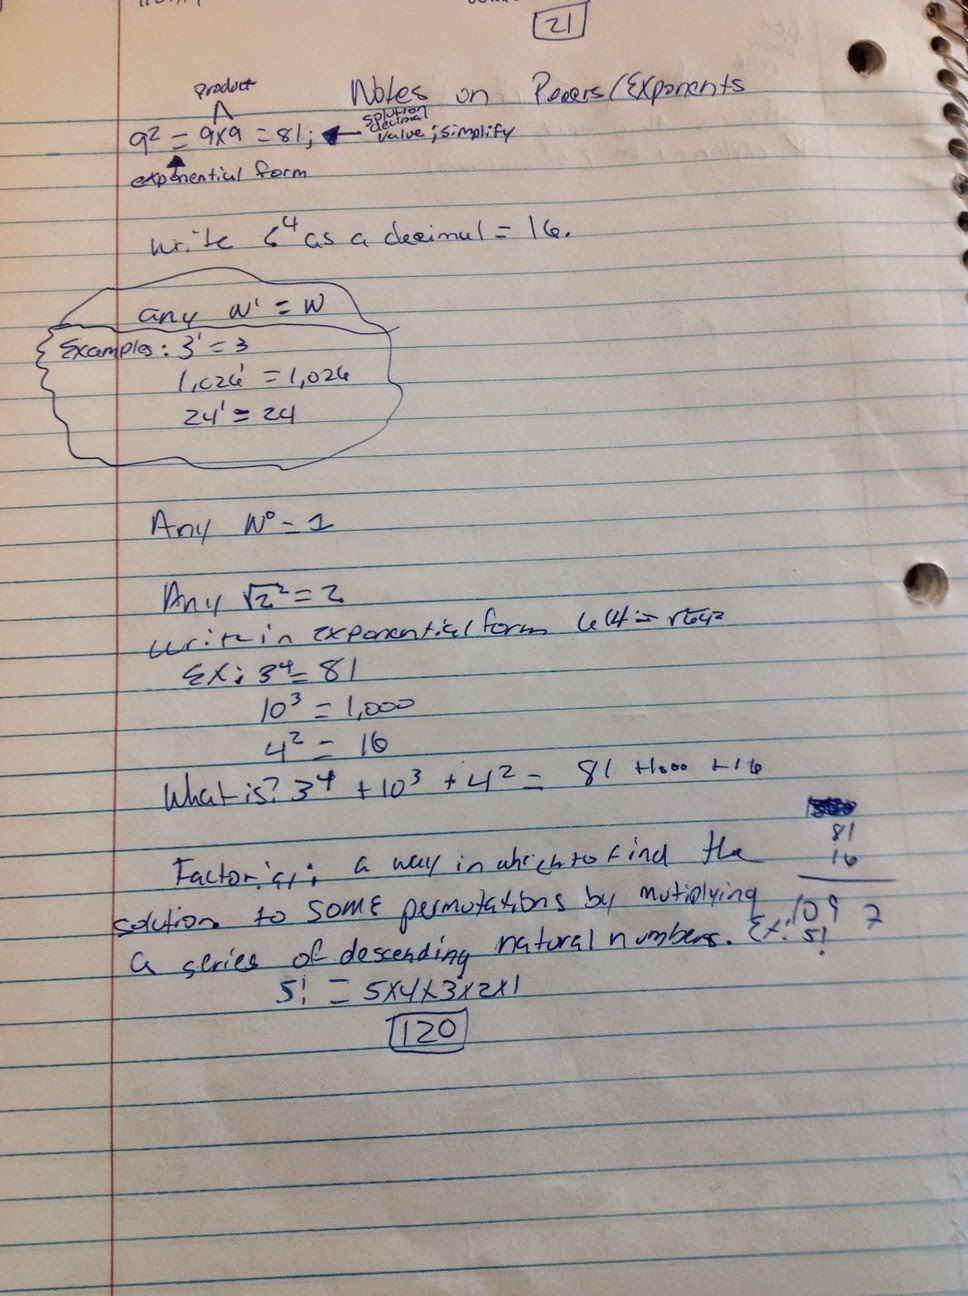 21
Notes on Powers/Exponents
Product
9² = 9x9 = 81; ← solution decimal value; simplify
exponential form
Write 2⁴ as a decimal = 16.
any N¹ = N
Examples: 3¹ = 3
1,026¹ = 1,026
24¹ = 24
Any N⁰ = 1
Any √2² = 2
write in exponential form 64 = √64²
Ex: 3⁴ = 81
10³ = 1,000
4² = 16
What is? 3⁴ + 10³ + 4² = 81 + 1000 + 16
81
16
109 7
Factorial: a way in which to find the
solution to some permutations by mutiplying
a series of descending natural numbers. Ex: 5!
5! = 5x4x3x2x1
120